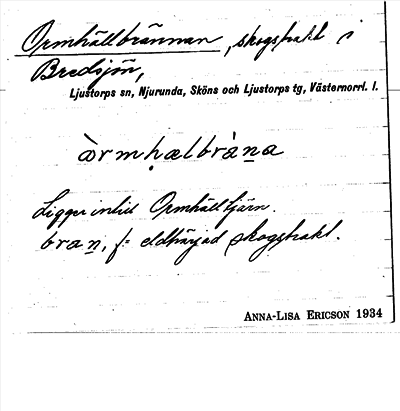 Ormhällbrännan, skogstrakt i
Bredsjön,
Ljustorps sn, Njurunda, Sköns och Ljustorps tg, Västernorrl. l.
òrmḥælbràṉa
Ligger intill Ormhälltjärn.
braṉ, f = eldhärjad skogstrakt.
ANNA-LISA ERICSON 1934